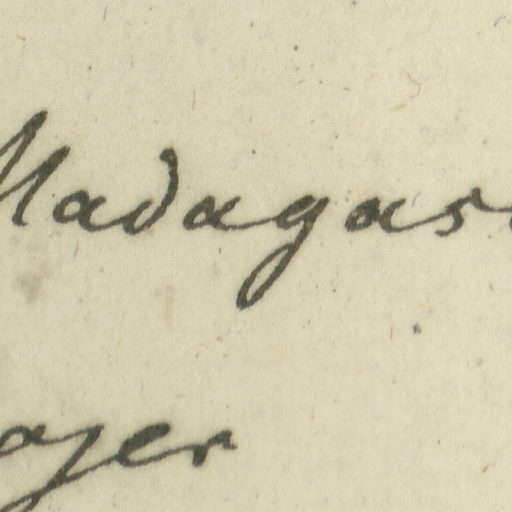 Madagas
ajer